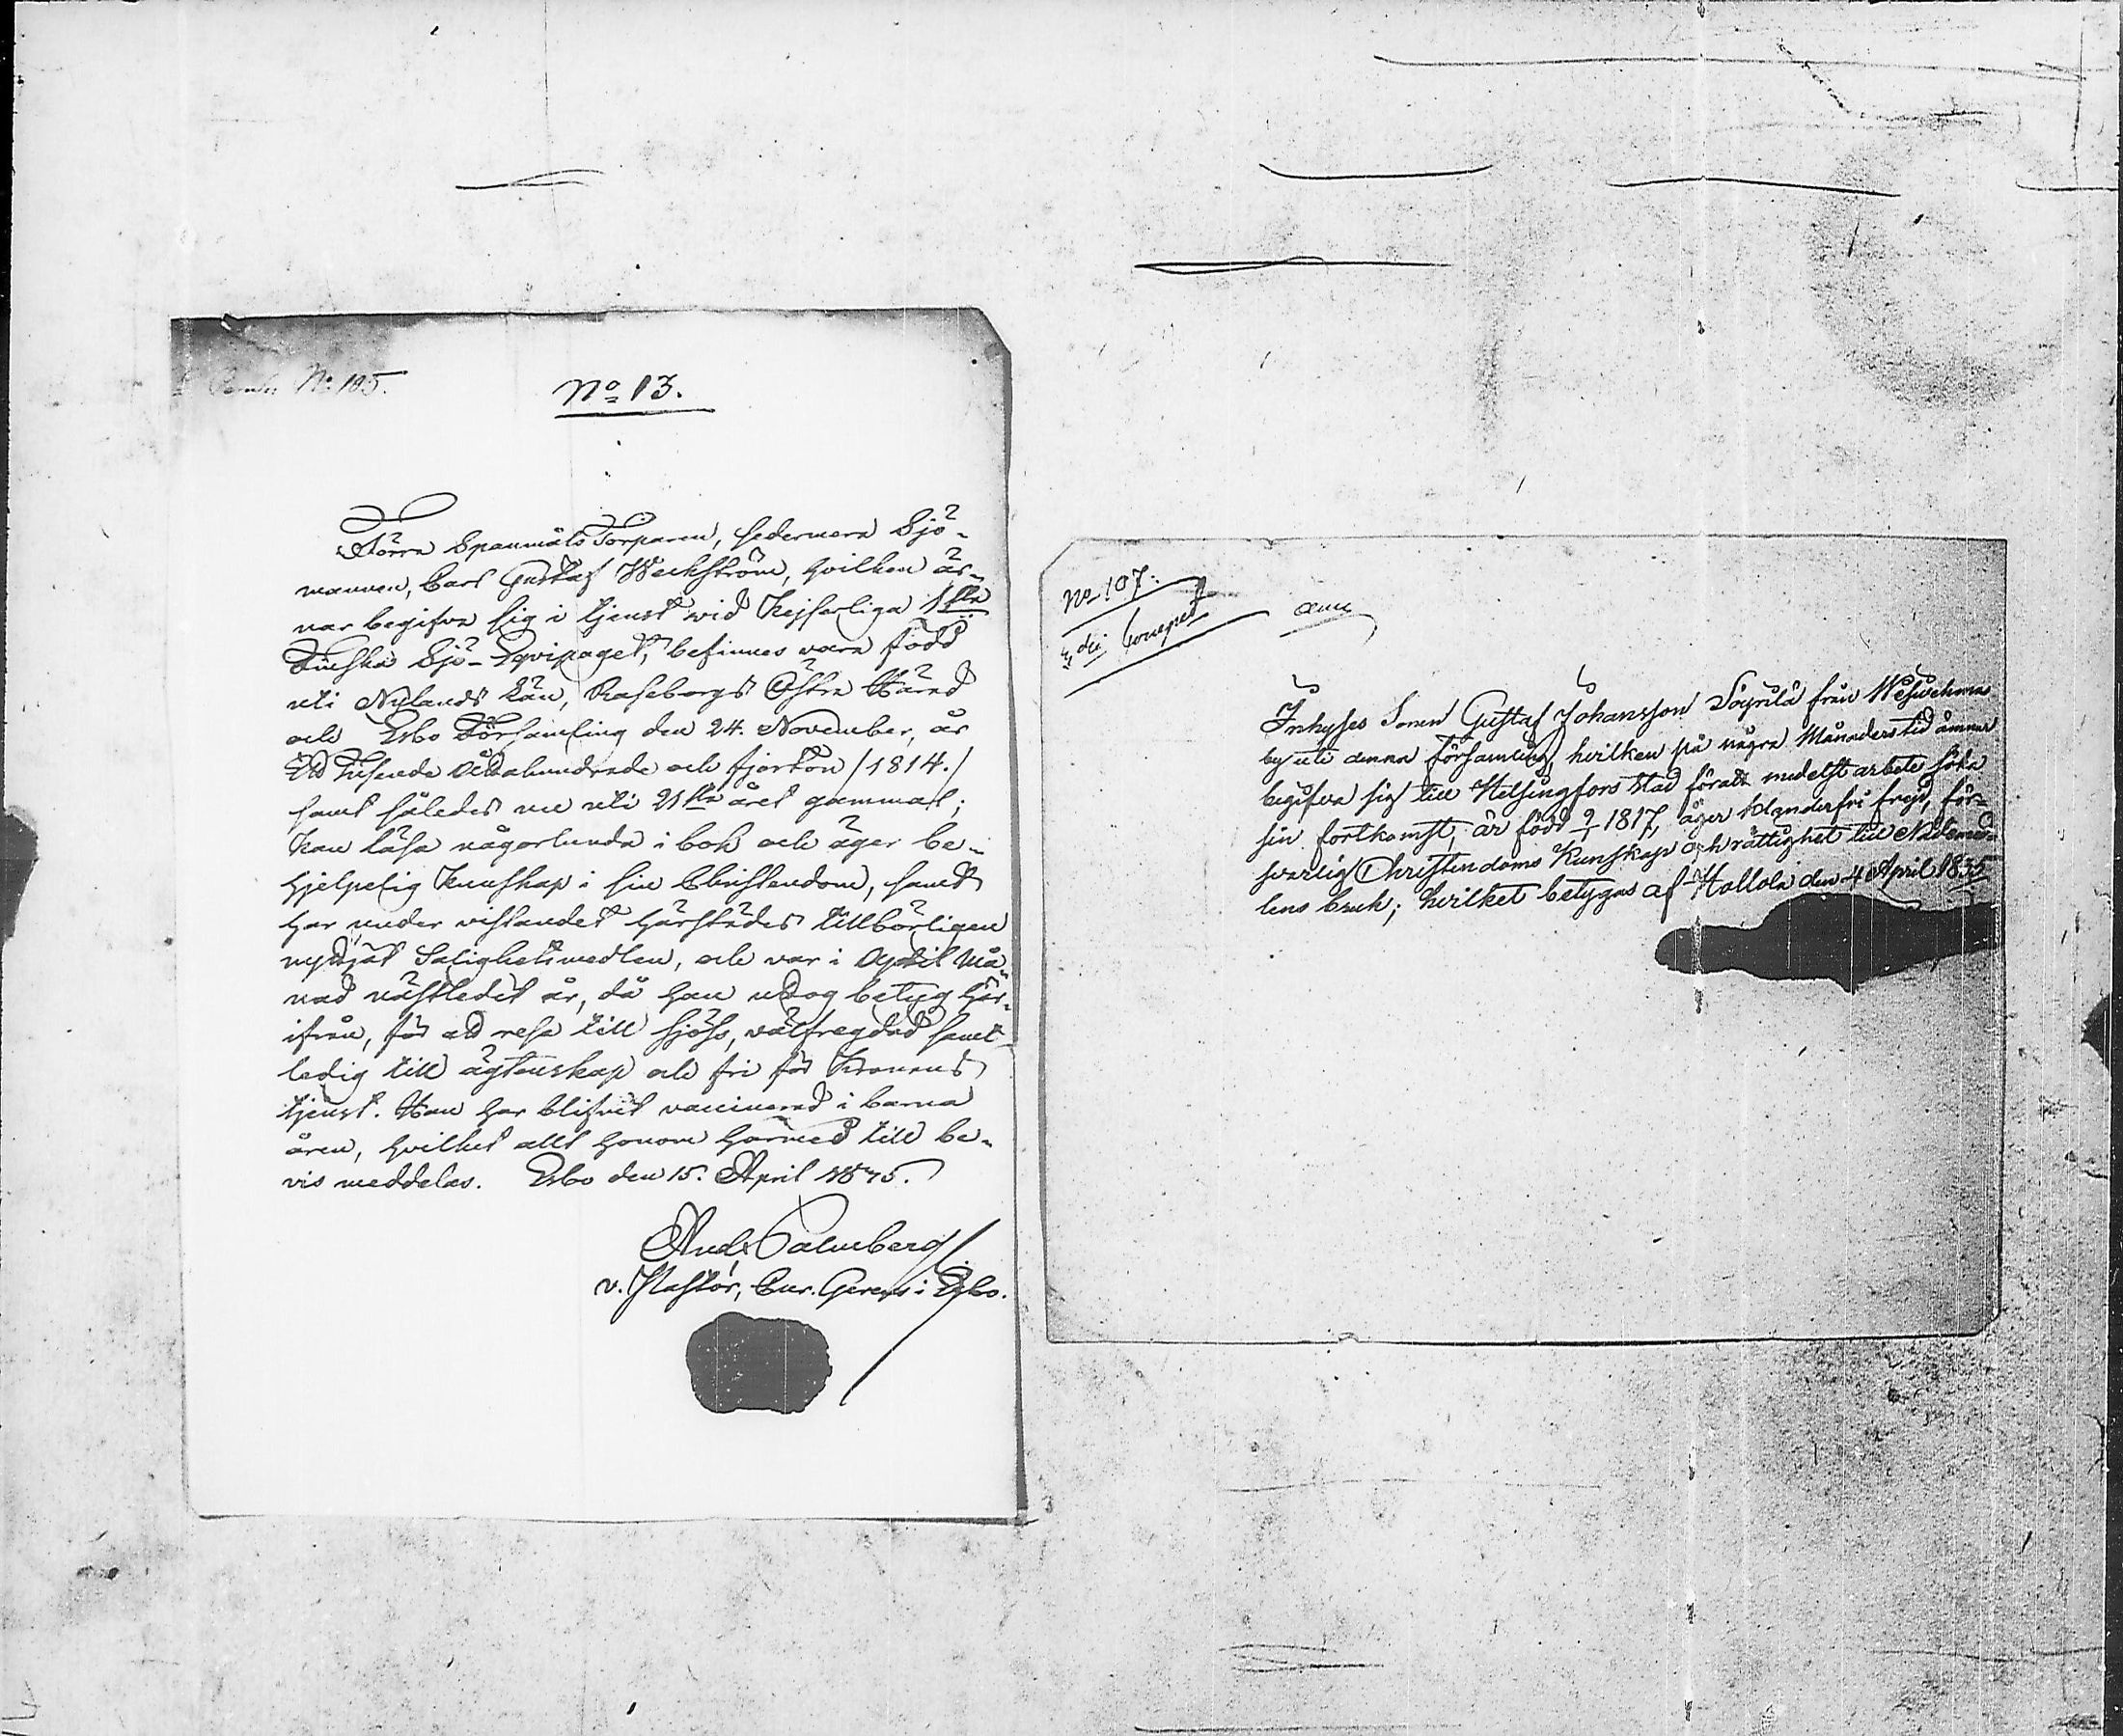 No 105.
No 13.
Förra Spanmåls Torparen, sedermera Sjö-
mannen, Carl Gustaf Weckström, hvilken är-
nar begifva sig i tjenst wid Kejserliga 1sta
Finska Sjö-Equipaget, befinnes vara född
uti Nylands Län, Raseborgs Östra Härad
och Esbo Församling den 24. November, år
Ett Tusende Åttahundrade och fjorton /1814./
samt således nu uti 21sta året gammal;
kan läsa någorlunda i bok och äger be-
hjelpelig kunskap i sin Christendom, samt
har under vistandet härstädes tillbörligen
nyttjat Salighetsmedlen, och var i April Må-
nad nästledit år, då han uttog betyg här-
ifrån, för att resa till sjöss, välfregdad samt
ledig till ägtenskap och fri för Kronans
tjenst. Han har blifvit vaccinerad i barna
åren, hvilket allt honom härmed till be-
vis meddelas. Esbo den 15. April 1835.
And. Palmberg
v. Pastor, Cur. Gerens i Esbo.
No 107.
Inhyses Sonen Gustaf Johansson Söyrilä från
by uti denna församling, hvilken på några Månaders tid ämnar
begifva sig till Helsingfors stadföratt medelst arbete söka
sin fortkomst, är född 9/1 1817, äger klanderfri frejd, för-
svarlig Christendoms Kunskap och rättighet till Nådemed-
lens bruk; hvilket betygas af Hollola den 4 April 1835